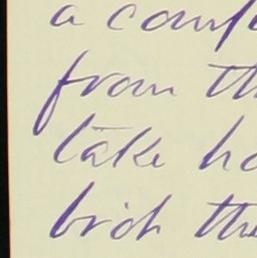 a comf
from th
take ho
bioh the